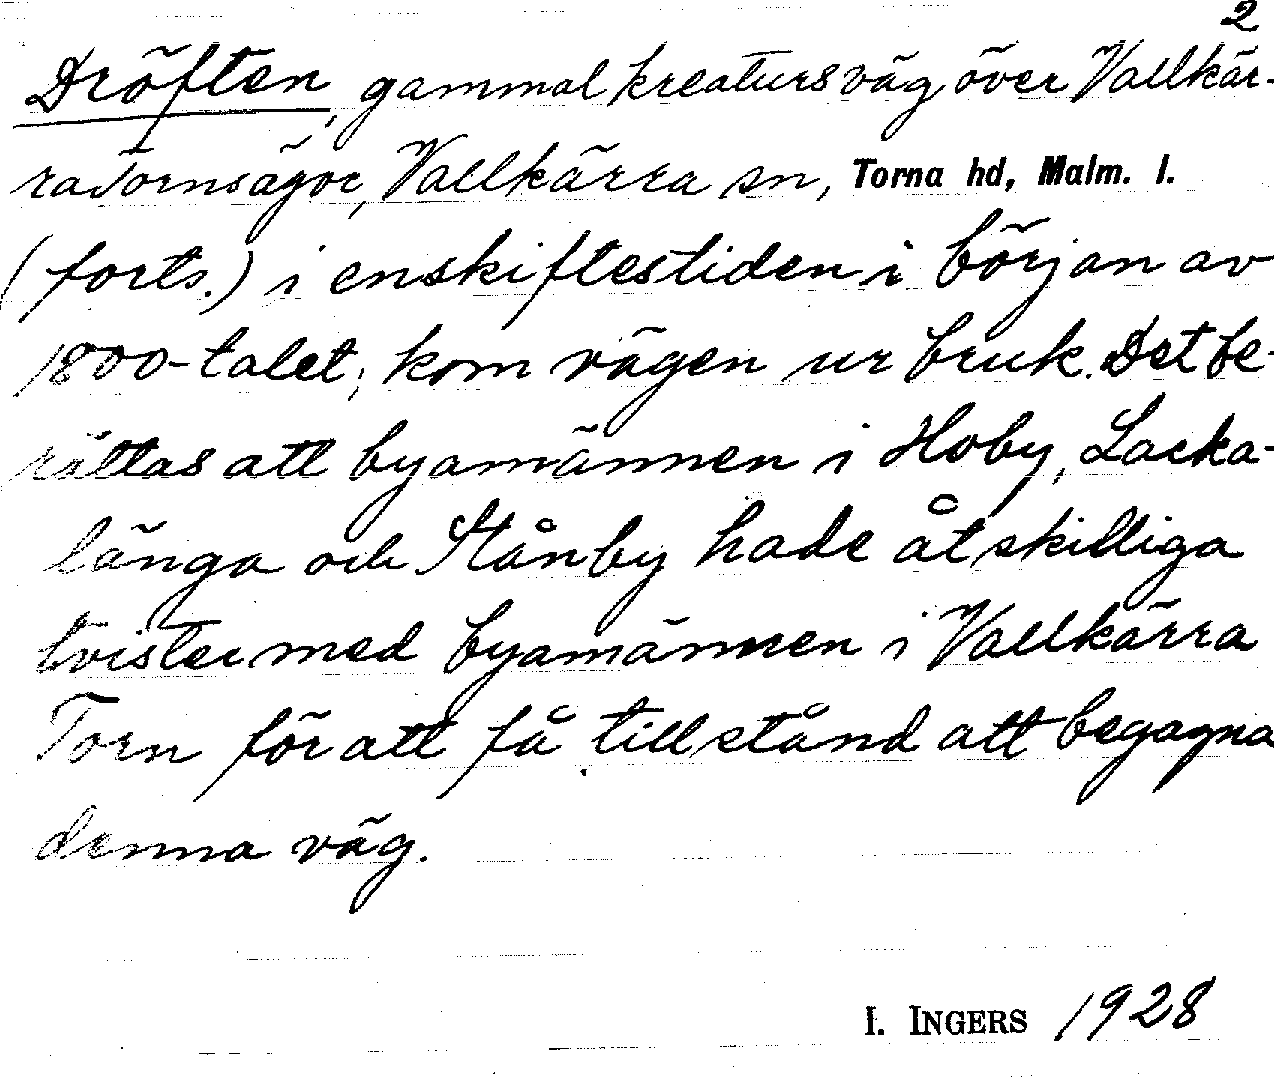 2
Dröften, gammal kreatursväg över Vallkär-
ratornsägor, Vallkärra sn, Torna hd, Malm. l.
(forts.) i enskiftestiden i början av
1800-talet, kom vägen ur bruk. Det be-
rättas att byamännen i Hoby, Lacka-
länga och Stånby hade åtskilliga
tvister med byamännen i Vallkärra
Torn för att få tillstånd att begagna
denna väg.
I. INGERS 1928